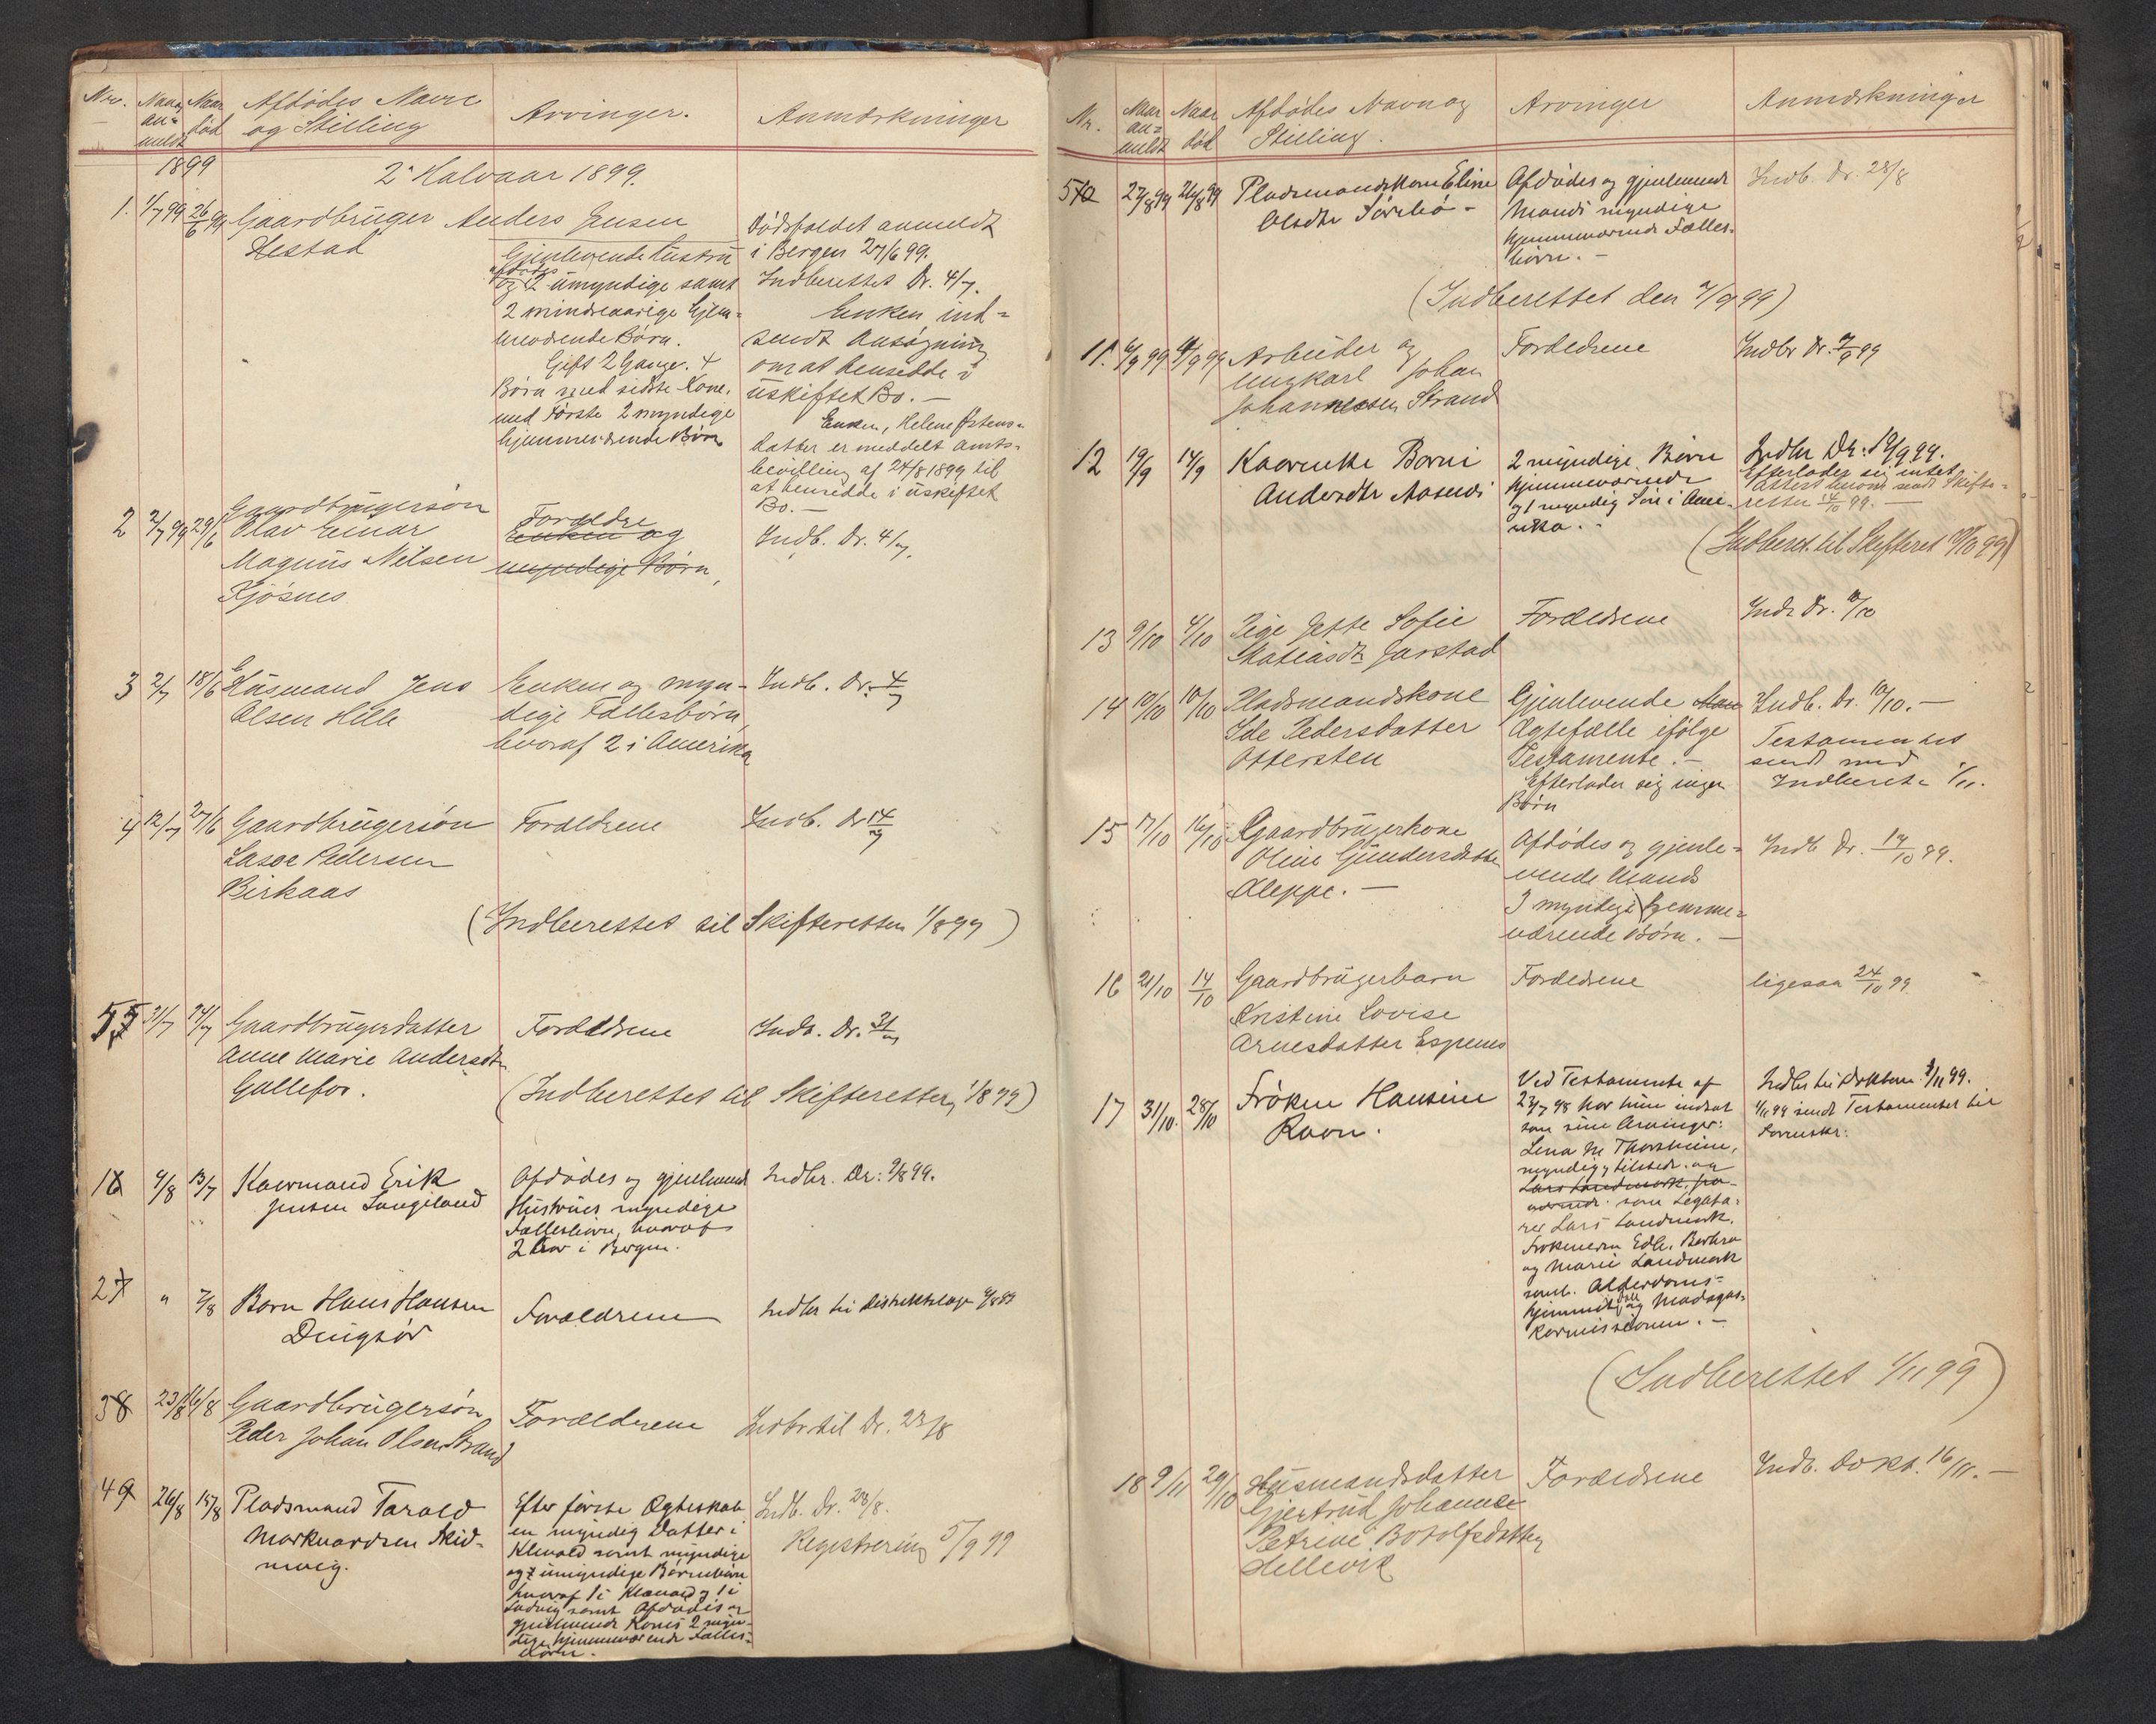 Nro.
Naar an=
meldt
Naar
død
Afdødes Navn
og Stilling
Arvinger.
Anmærkninger
1899
2' Halvaar 1899.
1. 1/7 99 26/6 99 Gaardbruger Anders Jensen
Hestad
Gjenlevende Hustru
afdødes
og 2 umyndige samt
2 mindreaarige hjem=
meværende Børn.
Gift 2 Gange. 4
Børn med sidste Kone.
med Første 2 myndige
hjemmeværende Børn
Dødsfaldet anmeldt
i Bergen 27/6 99.
Indberettet Dr. 4/7.
Enken ind=
sendt Ansøgning
om at hensidde i
uskiftet Bo. —
Enken, Helene Østens=
datter er meddelt Amts=
bevilling af 24/8 1899 til
at hensidde i uskiftet
Bo. —
2 2/7 99 29/6 Gaardbrugersøn
Olav Einar
Magnus Nilsen
Kjøsnes
Forældre
Enken og
myndige Børn,
Indb. Dr. 4/7.
3 2/7 18/6 Husmand Jens
Olsen Helle
Enken og myn-
dige Fællesbørn,
hvoraf 2 i Amerika
Indb. Dr. 4/7
4 12/7 27/6 Gaardbrugersøn
Lasse Pedersen
Birkaas
Forældrene
Indb. Dr 14/7
(Indberettet til Skifteretten 1/8 99)
5 31/7 Gaardbrugersdatter
Anne Marie Andersdtr
Gullefos.
Forældrene
Indb. Dr. 31/7
(Indberettet til Skifteretten 1/8 99)
1 4/8 13/7 Kaarmand Erik
Jensen Langeland
Afdødes og gjenlevend
Hustrues myndige
Fællesbørn, hvoraf
2 i Bergen.
Indbr. Dr: 9/8 99.
2 7 " 7/8 Barn Hans Hansen
Dingsør
Forældrene
Indbr til Distriktslæge 9/8 99
3 8 23/8 16/8 Gaardbrugersøn
Peder Johan Olsen Strand
Forældrene
Indbr til Dr. 23/8
4 9 26/8 15/8 Pladsmand Tarald
Markvardsen Skid-
mvig.
Efter første Ægteskab
en myndig Datter i
samt myndige
og umyndige Børnebørn
hvoraf 1 i og 1 i
samt Afdødes og
gjenlevende Kones 2 myn-
dige hjemmeværende Fælles=
børn.
Indb. Dr. 28/8.
Registrering 5/9 99
Nr.
Naar
an=
meldt
Naar
død
Afdødes Navn og
Stilling.
Arvinger
Anmærkninger
5 10 27/8 99 26/8 99 Pladsmandskone Eline
Olsdtr Sørebø -
Afdødes og gjenlevende
Mands myndige
hjemmeværende Fælles-
børn. —
Indb. Dr. 28/8
(Indberettet den 2/9 99)
11. 6/9 99 4/9 99 Arbeider og
Ungkarl Johan
Johannessen Strand
Forældrene
Indbr Dr. 7/9 99
12 19/9 14/9 Kaarenke Berni
Andersdtr Aasend
2 myndige Børn
hjemmeværende
og 1 myndig Søn i Ame-
rika. -
Indbr Dr: 19/9 99.
Efterlader sig intet
Attest herom sendt Skifte-
retten 14/10 99. —
(Indberet. til Skifteret 99)
13 9/10 4/10 Pige Jette Sofie
Matiasdtr Jarstad
Forældrene
Indb Dr. 10/10
14 10/10 10/10 Pladsmandskone
Ide Pedersdatter
Ottersten
Gjenlevende Man
Ægtefælle ifølge
Testamente. —
Efterlader sig ingen
Børn
Indb. Dr. 10/10. —
Testamentet
sendt med
Indberet- 1/11.
15 17/10 16/10 Gaardbrugerkone
Oline Gundersdatter
Kleppe. —
Afdødes og gjenle=
vende Mands
3 myndige hjemme=
værende Børn. —
Indb Dr. 17/10 99.
16 21/10 14/10 Gaardbrugerbarn
Kristine Lovise
Arnesdatter Espenes
Forældrene
ligesaa 24/10 99
17 31/10. 28/10 Frøken Hansine
Ravn.
Ved Testamente af
23/7 98 har hun indsat
som sine Arvinger:
Lena M. Thorsheim,
myndig, tilstede. og
Lars Landmark, fra-
værende. som Legata=
rer Lars Landmark.
Frøknerne Edle, Barbra
og Marie Landmark
samt. Alderdoms=
hjemmet og Madagas=
karmissionen. —
Indbr til Doktoren 1/11 99.
1/11 99 sendt Testamentet til
Sorenskr:
(Indberettet 1/11 99)
18 9/11 29/10 Husmandsdatter
Gjertrud Johanne
Petrine Botolfsdatter
Hellevik
Forældrene
Indb. Dokt. 16/11. —